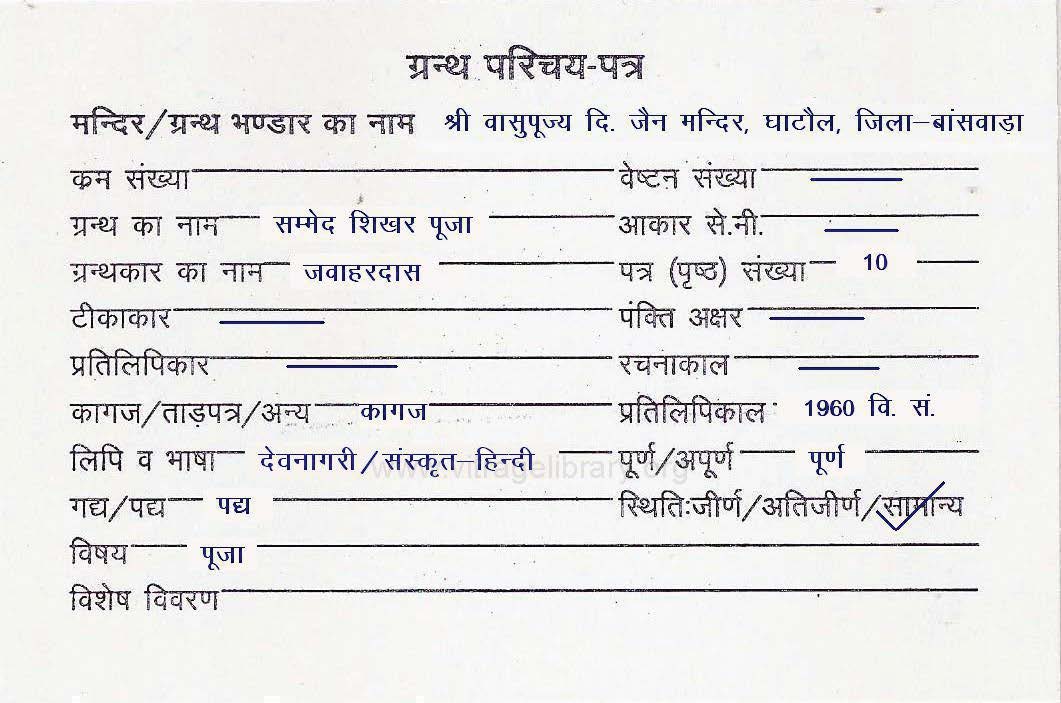 ग्रन्थ परिचय-पत्र
मन्दिर/ग्रन्थ भण्डार का नाम श्री वासुपूज्य दि. जैन मन्दिर, घाटौल, जिला–बांसवाड़ा
कम संख्या वेष्टन संख्या
ग्रन्थ का नाम सम्मेद शिखर पूजा आकार से.मी.
ग्रन्थकार का नाम जवाहरदास पत्र (पृष्ठ) संख्या 10
टीकाकार पंक्ति अक्षर
प्रतिलिपिकार रचनाकाल
कागज/ताड़पत्र/अन्य कागज प्रतिलिपिकाल 1960 वि. सं.
लिपि व भाषा देवनागरी/संस्कृत–हिन्दी पूर्ण/अपूर्ण पूर्ण
www.vitragelibrary.org
गद्य/पद्य पद्य स्थितिःजीर्ण/अतिजीर्ण/सामान्य
विषय पूजा
विशेष विवरण